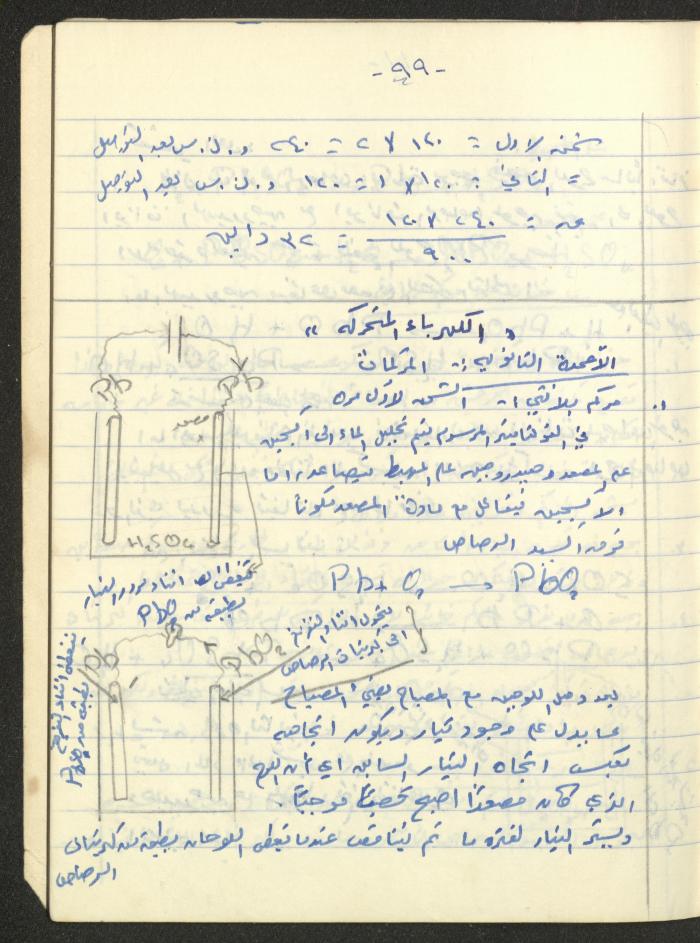 -٩٩-
شحنة الاول = ١٢٠ × ٢ = ٢٤٠ و.ك.س بعد التوصيل
= الثاني = ١٢٠ × ١ = ١٢٠ و.ك.س بعد التوصيل
= ١٢٠ × ٢٤٠ / ٩٠٠ = ٣٢ داين
« الكهرباء المتحركة »
الأعمدة الثانوية :- المركمات
١. مركم بلانتي :- الشحن لأول مرة
في الفولتامتر المرسوم يتم تحليل الماء الى أكسجين
على المصعد وهيدروجين على المهبط يتصاعد، اما
الأكسجين فيتفاعل مع مادة المصعد مكوناً
فوق أكسيد الرصاص
Pb + O₂ → PbO₂
Pb
Pb
مصعد
H₂SO₄
تتغطى اثناء مرور التيار
بطبقة من PbO₂
يتحول اثناء التفريغ
الى كبريتات الرصاص
Pb
PbO₂
تتغطى اثناء التفريغ
بطبقة من PbSO₄
بعد وصل اللوحين مع المصباح يضيء المصباح
مما يدل على وجود تيار ويكون اتجاهه
بعكس اتجاه التيار السابق اي أن اللوح
الذي كان مصعداً اصبح قطباً موجباً.
ويستمر التيار لفترة ما ثم يتناقص عندما تغطى اللوحان بطبقة من كبريتات
الرصاص